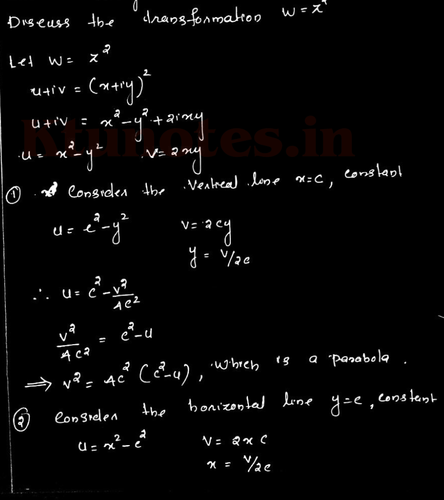 Discuss the transformation W = z²
Let W = z²
u+iv = (x+iy)²
u+iv = x²-y²+2ixy
u = x²-y² v = 2xy
Ktunotes.in
① Consider the vertical line x=c, constant
u = c²-y² v = 2cy
y = v/2c
∴ u = c² - v²/4c²
v²/4c² = c²-u
⇒ v² = 4c² (c²-u), which is a parabola.
② Consider the horizontal line y=c, constant
u = x²-c² v = 2xc
x = v/2c